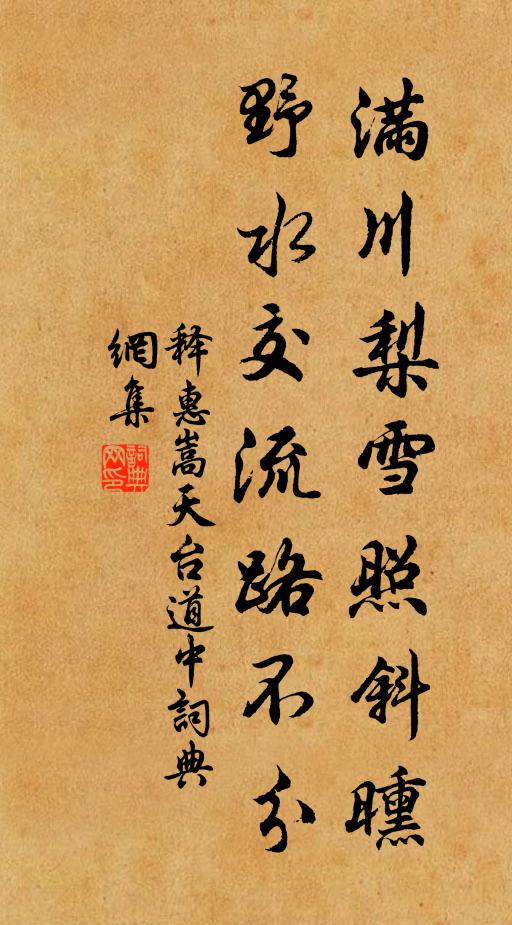 滿川梨雪照斜曛
野水交流路不分
释惠嵩天台道中詞典
網集
詞典
网印